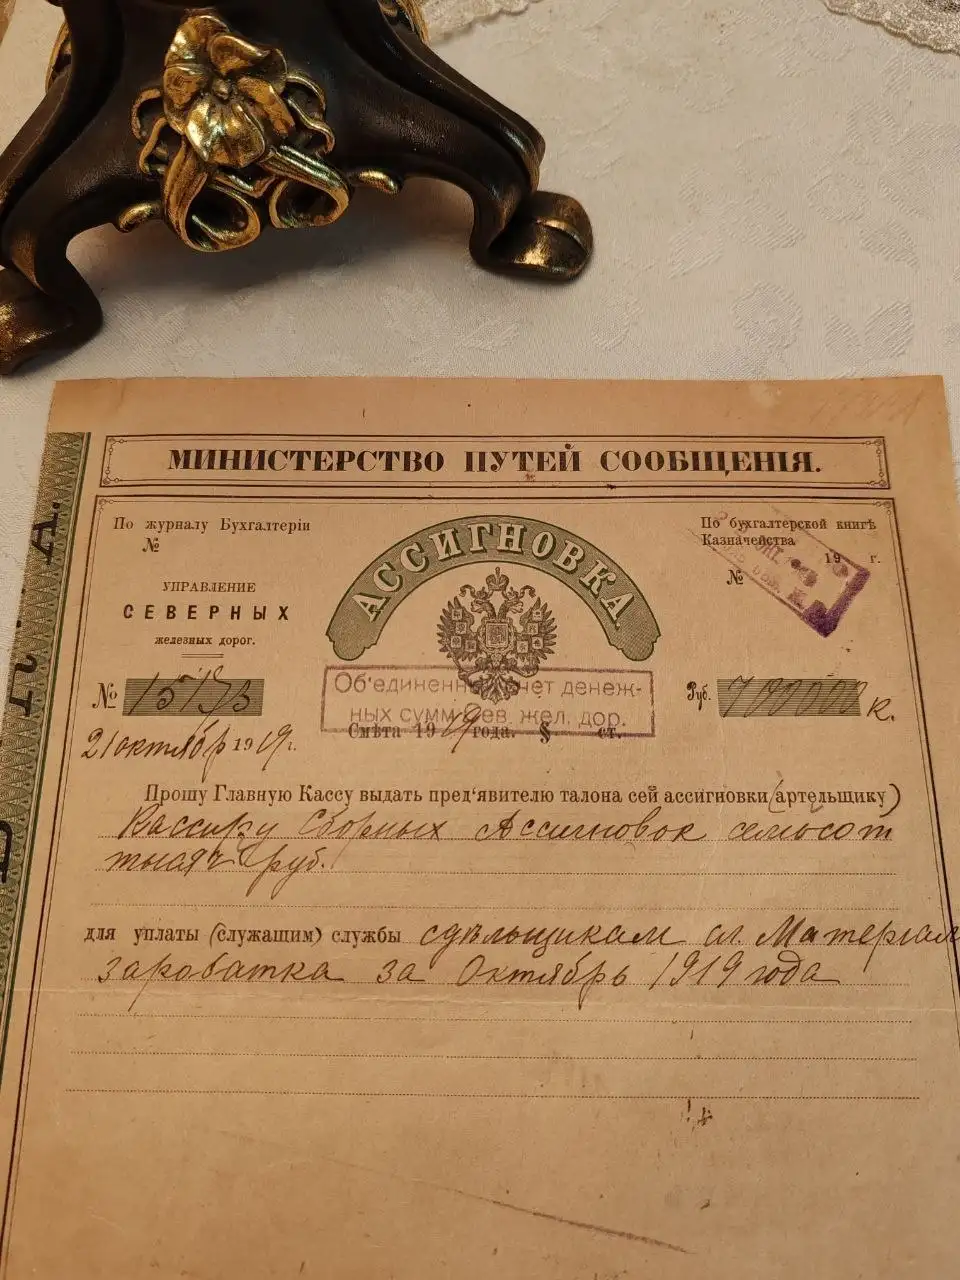 МИНИСТЕРСТВО ПУТЕЙ СООБЩЕНІЯ.
По журналу Бухгалтеріи
№
УПРАВЛЕНІЕ
СѢВЕРНЫХ
желѣзных дорог.
АССИГНОВКА.
По бухгалтерской книгѣ
Казначейства
19 г.
№
№
21 октября 1919 г.
Об'единенн счет денеж-
ных сумм Сев. жел. дор.
Смѣта 1919 года. § ст.
Руб. 700000 к.
Прошу Главную Кассу выдать пред'явителю талона сей ассигновки (артельщику)
Кассиру Сборных Ассигновок семьсот
тысяч руб.
для уплаты (служащим) службы сдѣльщикам сл. Матеріал
заработка за Октябрь 1919 года